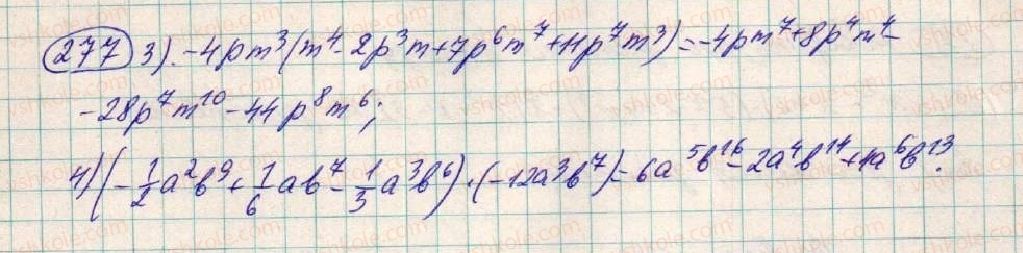 277 3). -4pm³(m⁴-2p³m+7p⁶m⁷+11p⁷m³)=-4pm⁷+8p⁴m⁴-
-28p⁷m¹⁰-44p⁸m⁶;
4)(-1/2a²b⁹+1/6ab⁷-1/3a³b⁶)·(-12a³b⁷)=6a⁵b¹⁶-2a⁴b¹⁴+4a⁶b¹³.